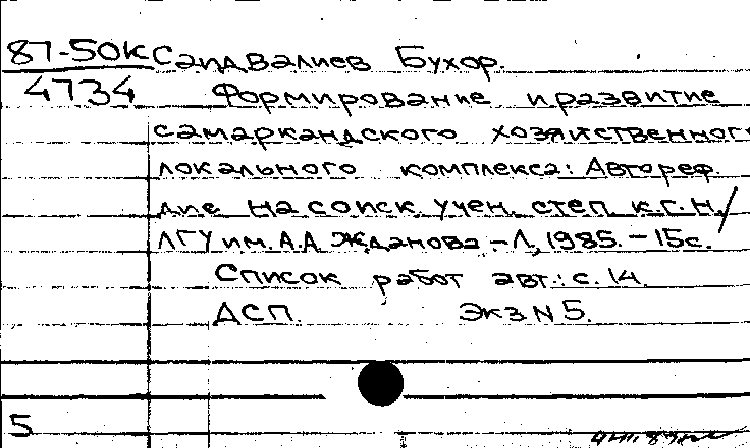 87-50К Саидвалиев Бухор.
4734 Формирование и развитие
самаркандского хозяйственного
локального комплекса: Автореф.
дис на соиск. учен. степ. к.г.н./
ЛГУ им. А.А Жданова - Л, 1985. - 15с.
Список работ авт.: с. 14.
ДСП. Экз N 5.
5